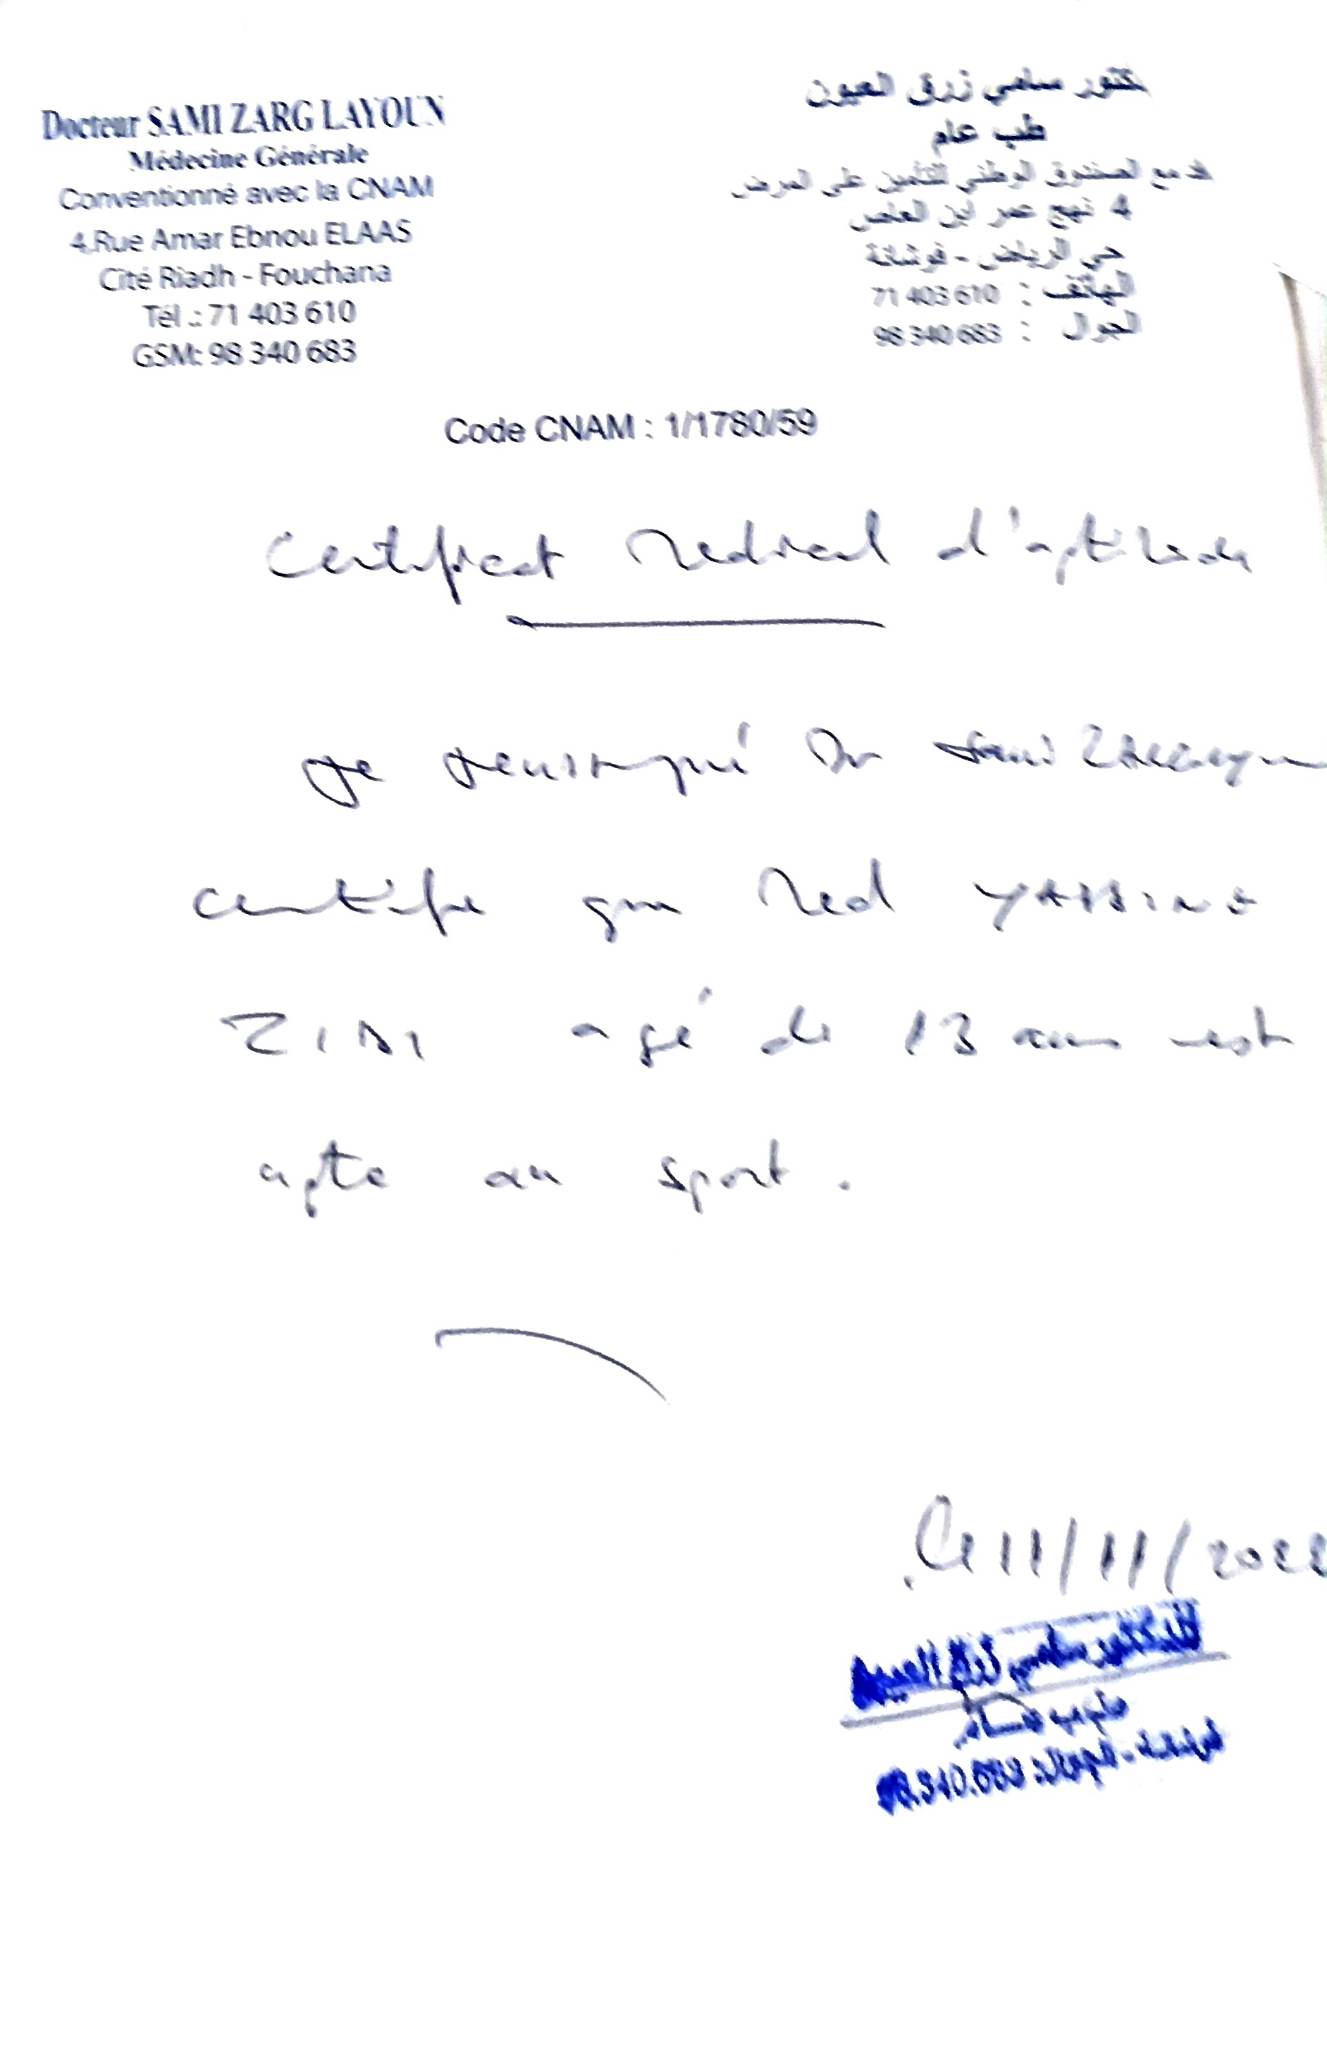 Docteur SAMI ZARG LAYOUN
Médecine Générale
Conventionné avec la CNAM
4,Rue Amar Ebnou ELAAS
Cité Riadh - Fouchana
Tél .: 71 403 610
GSM: 98 340 683
كتور سامي زرق العيون
طب عام
مع الصندوق الوطني للتأمين على المرض
4 نهج عمر ابن العاص
حي الرياض - فوشانة
الهاتف : 71 403 610
الجوال : 98 340 683
Code CNAM : 1/1780/59
Certificat Medical d'aptitude
Je soussigné Dr Sami
certifie que Med YASSINE
ZIDI agé de 13 ans est
apte au sport.
Le 11/11/2022
الدكتور سامي زرق العيون
طبيب عام
فوشانة - الجوال: 98.340.683